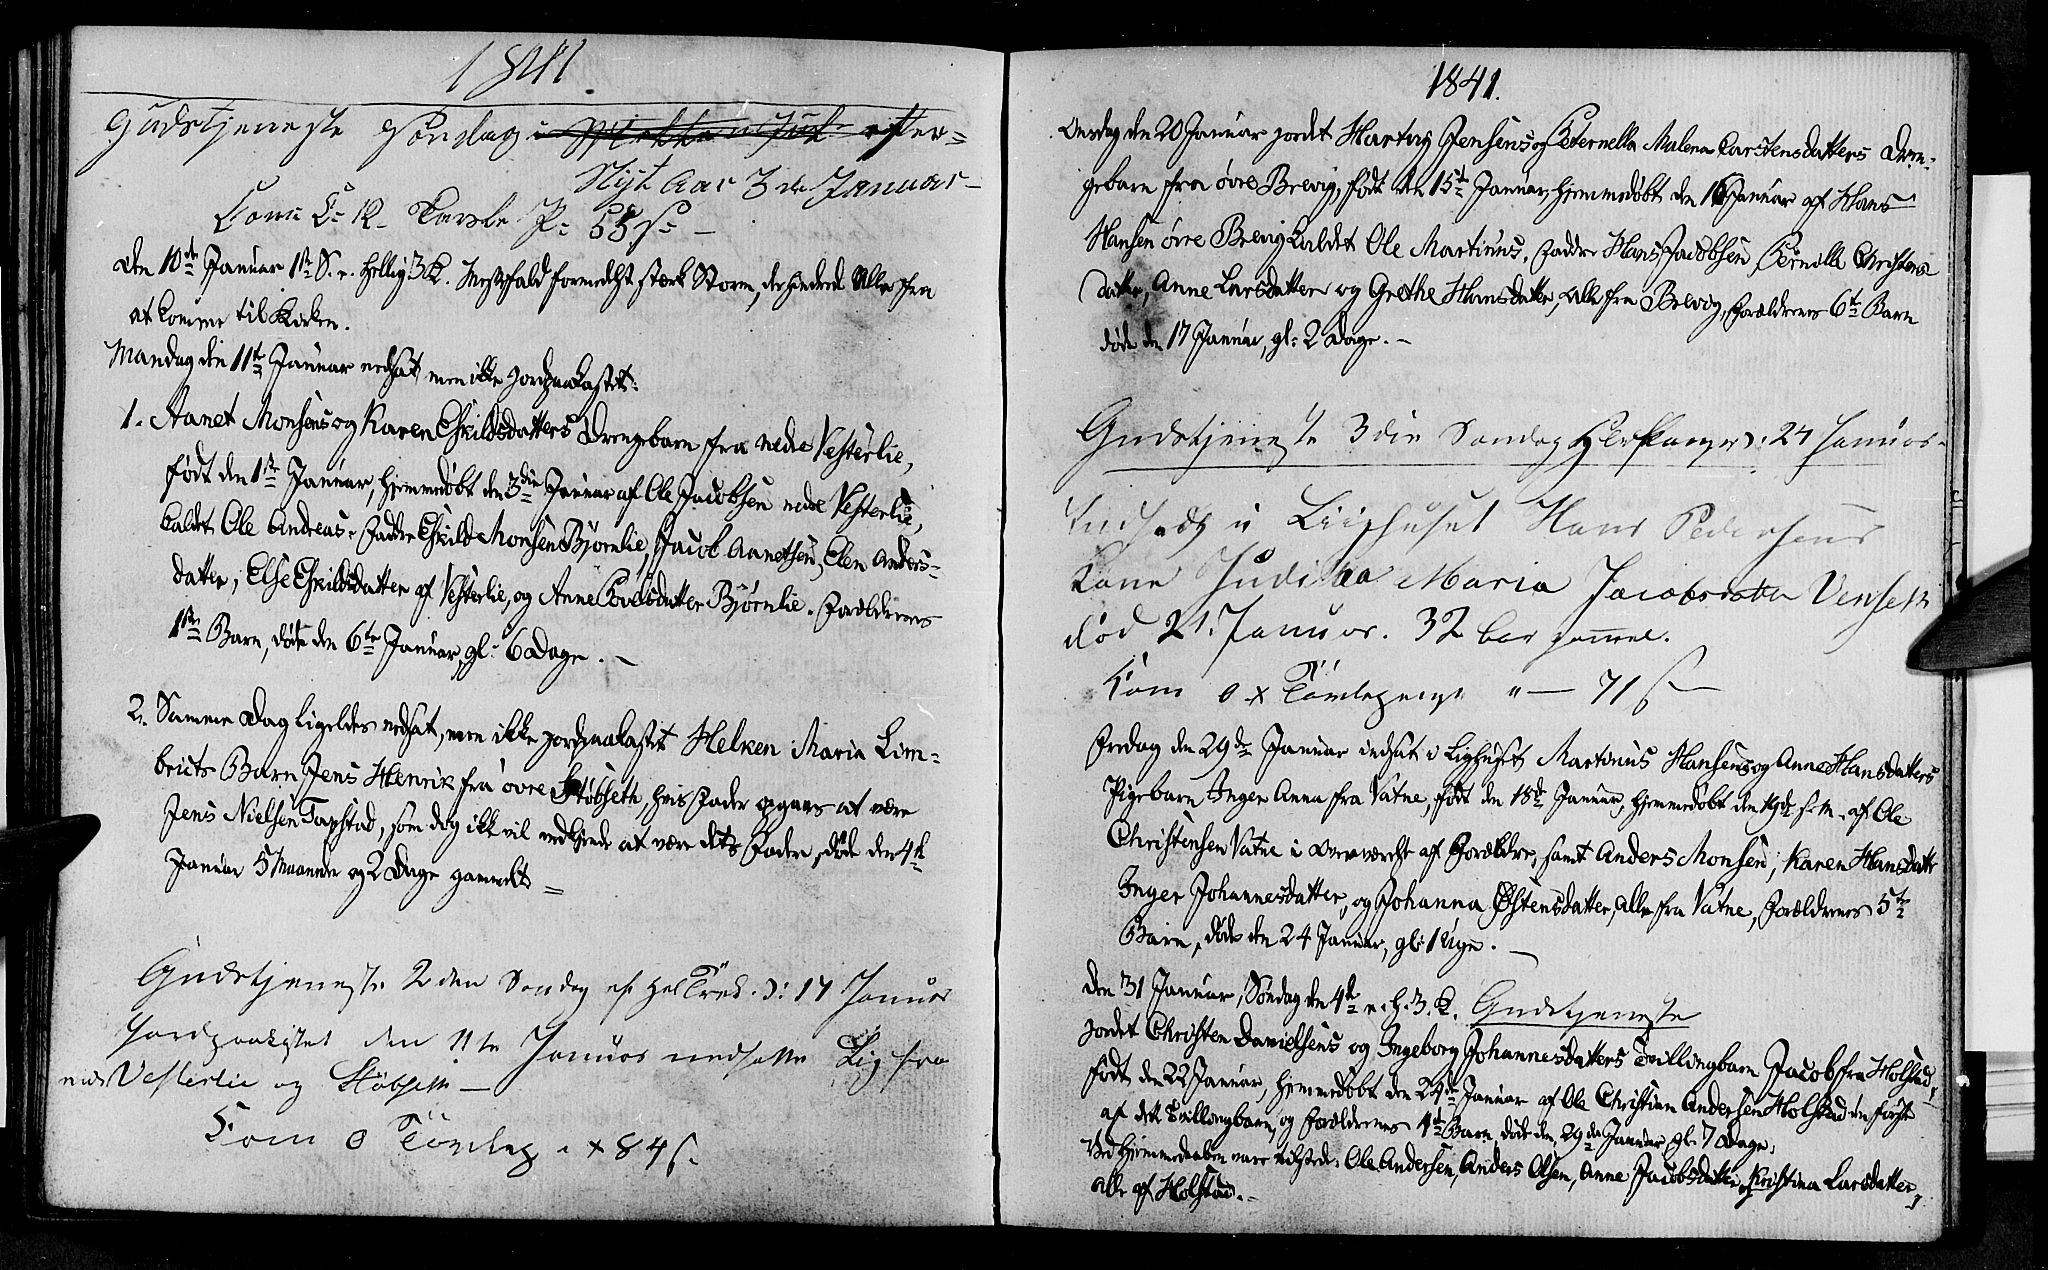 1841
Gudstjeneste Søndag efter
Nyt Aar 3die Januar
Com: 12 Tavle P: 55 s
Den 10de Januar 1ste S. e. Hellig 3K. Messefald formedelst stærk Storm, der hindrede Alle fra
at komme til Kirken.
Mandag den 11te Januar nedsat, men ikke jordpaakastet:
1. Aanet Monsens og Karen Eskildsdatters Drengebarn fra nedre Vesterlie,
født den 1ste Januar, hjemmedøbt den 3die Januar af Ole Jacobsen nedre Vesterlie,
kaldet Ole Andreas. Faddre Eskild Monsen Bjørnlie, Jacob Aanetsen, Elen Anders-
datter, Else Eskildsdatter af Vesterlie, og Anne Povelsdatter Bjørnlie. Forældrenes
1ste Barn, døde den 6te Januar, gl. 6 Dage.
2. Samme Dag ligeledes nedsat, men ikke jordpaakastet Helken Maria Lim-
bricts Barn Jens Henrik fra øvre Støbseth, hvis Fader opgaves at være
Jens Nielsen Tapstad, som dog ikke vil vedkjende at være dets Fader, døde den 4de
Januar 5 Maaneder og 2 Dage gammelt
Gudstjeneste 2den Søndag ef Hel Tred. d: 17 Januar
Jordpaakastet den 11te Januar nedsatte Lig fra
nedr Vesterlie og Støbseth
Com 0 84 s.
1841.
Onsdag den 20 Januar jordet Hartvig Jensens og Peternella Malena Carstensdatters Dren-
gebarn fra øvre Brevig, født den 15de Januar, hjemmedøbt den 16 Januar af Hans
Hansen øvre Brevig kaldet Ole Martinus. Faddre Hans Jacobsen, Pernelle Christens
datter, Anne Larsdatter og Grethe Hansdatter, alle fra Brevig, Forældrenes 6te Barn
døde den 17 Januar, gl: 2 Dage.
Gudstjeneste 3die Søndag : 24 Januar
Indsadt i Liighuset Hans Pedersens
Kone Judithа Maria Jacobsdatter Venseth
død 21. Januar. 32 aar gammel.
Com 0 71 s
Fredag den 29de Januar indsat i Lighuset Martinus Hansens og Anne Hansdatters
Pigebarn Inger Anna fra Vatne, født den 18de Januar, hjemmedøbt den 19de s. M. af Ole
Christensen Vatne i Overværelse af Forældre, samt Anders Monsen, Karen Hansdatr
Inger Johannesdatter, og Johanna Østensdatter, alle fra Vatne, Forældrenes 5te
Barn, døde den 24 Januar, gl: 1 Uge.
Den 31 Januar, Søndag den 4de e. H. 3. K. Gudstjeneste
jordet Christen Danielsens og Ingeborg Johannesdatters Tvillingbarn Jacob fra Holstad,
født den 22 Januar, hjemmedøbt den 24de Januar af Ole Christian Andersen Holstad den første
af dette Tvillingbarn, og Forældrenes 1ste Barn, døde den 29de Januar, gl: 7 Dage.
Ved Hjemmedaaben vare tilstede: Ole Andersen, Anders Olsen, Anne Jacobsdatter og Kristina Larsdatter,
alle af Holstad.